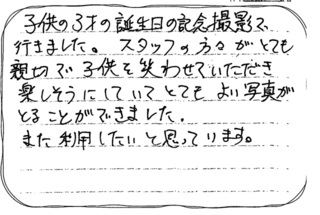 子供の3才の誕生日の記念撮影で
行きました。スタッフの方々がとても
親切で子供を笑わせていただき
楽しそうにしていてとてもよい写真が
とることができました.
また利用したいと思っています。